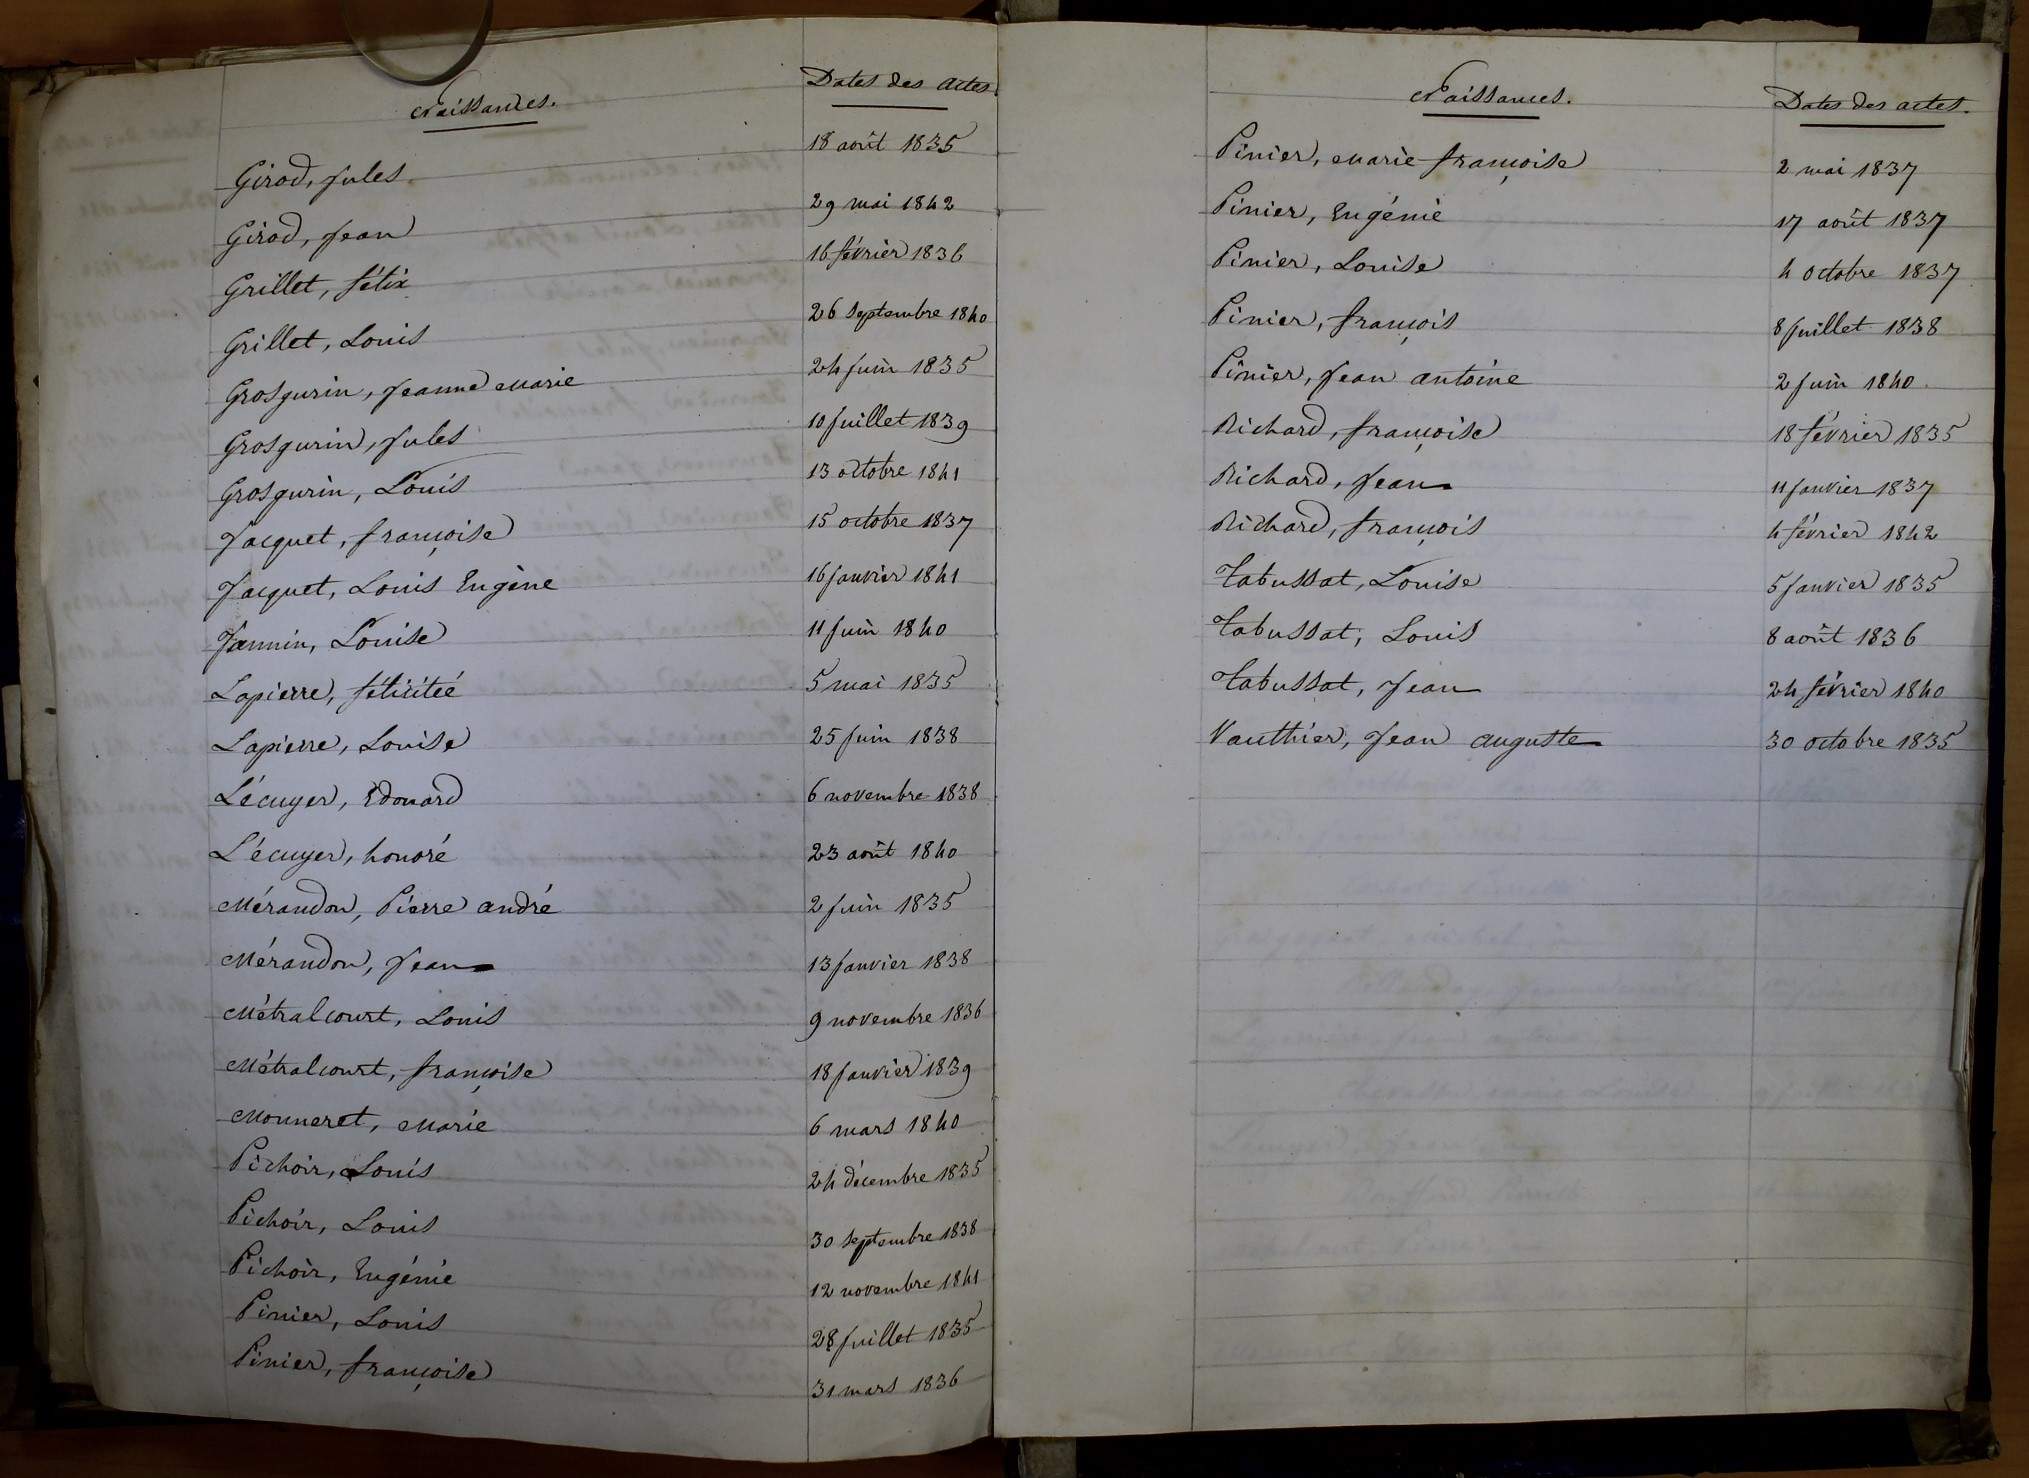 Naissances. Dates des actes.
Girod, Jules 18 août 1835
Girod, Jean 29 mai 1842
Grillet, félix 16 février 1836
Grillet, Louis 26 septembre 1840
Grosgurin, Jeanne Marie 24 juin 1835
Grosgurin, Jules 10 juillet 1839
Grosgurin, Louis 13 octobre 1841
Jacquet, françoise 15 octobre 1837
Jacquet, Louis Eugène 16 janvier 1841
Jannin, Louise 11 juin 1840
Lapierre, félicitée 5 mai 1835
Lapierre, Louise 25 juin 1838
L'écuyer, Edouard 6 novembre 1838
L'écuyer, honoré 23 août 1840
Mérandon, Pierre andré 2 juin 1835
Mérandon, Jean 13 janvier 1838
Métralcourt, Louis 9 novembre 1836
Métralcourt, françoise 18 janvier 1839
Monneret, Marie 6 mars 1840
Pichoir, Louis 24 décembre 1835
Pichoir, Louis 30 septembre 1838
Pichoir, Eugénie 12 novembre 1841
Pinier, Louis 28 juillet 1835
Pinier, françoise 31 mars 1836
Naissances. Dates des actes.
Pinier, Marie françoise 2 mai 1837
Pinier, Eugénie 17 août 1837
Pinier, Louise 4 octobre 1837
Pinier, françois 8 juillet 1838
Pinier, Jean antoine 2 juin 1840
Richard, françoise 18 février 1835
Richard, Jean 11 janvier 1837
Richard, françois 4 février 1842
Tabussat, Louise 5 janvier 1835
Tabussat, Louis 8 août 1836
Tabussat, Jean 24 février 1840
Vauthier, Jean auguste 30 octobre 1835